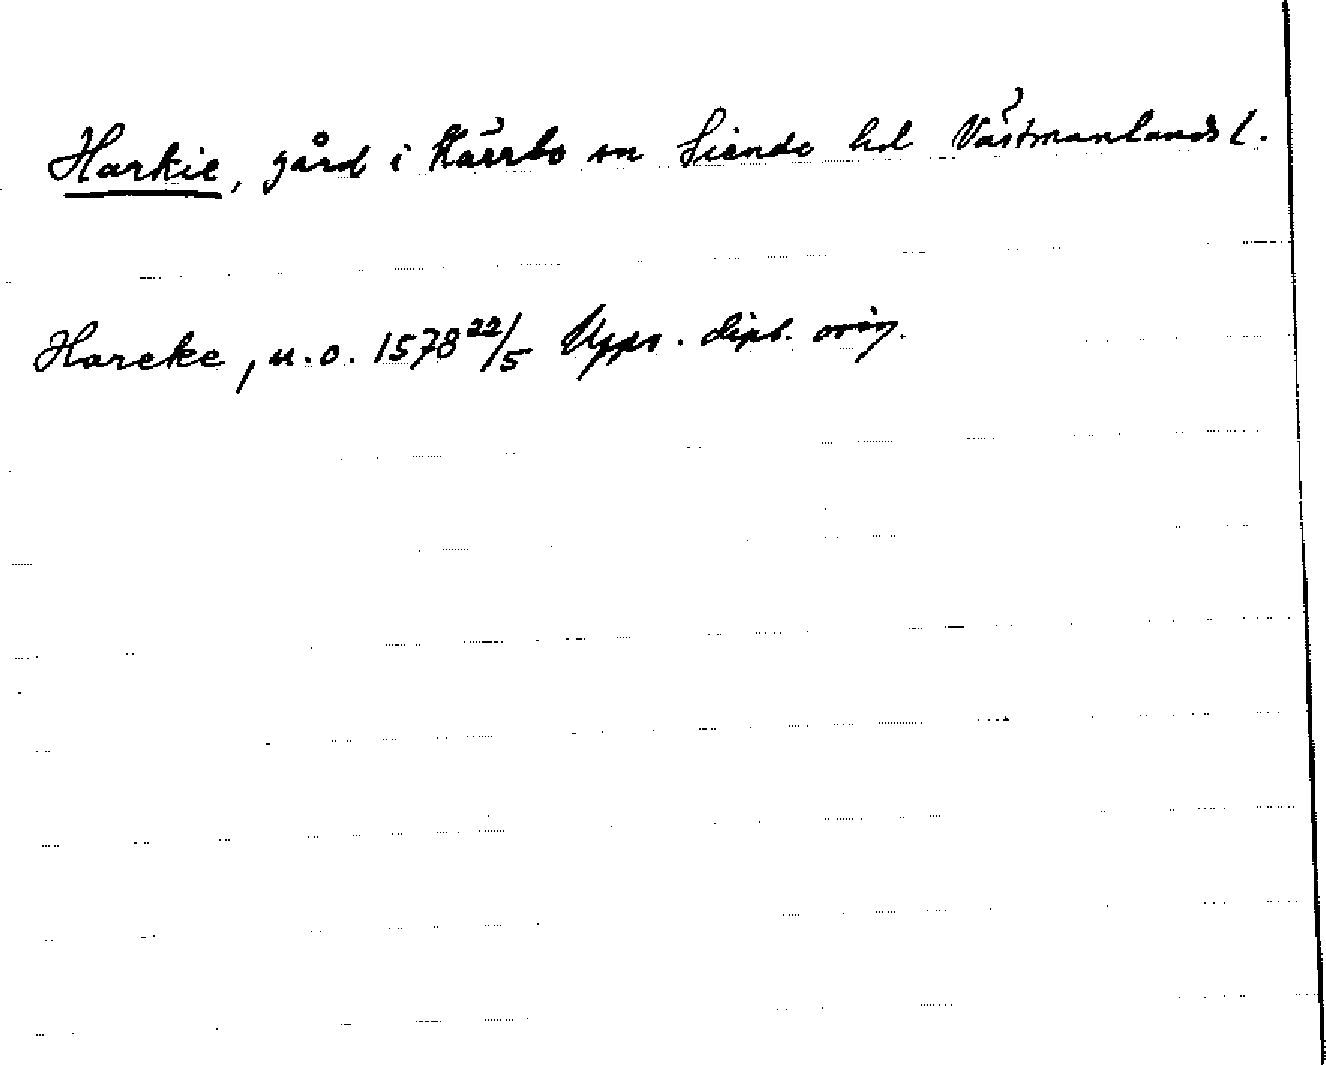 Harkie, gård i Kärrbo sn Siende hd Västmanlands l.
Harcke, u.o. 1578 22/5 Upps. dipl. orig.